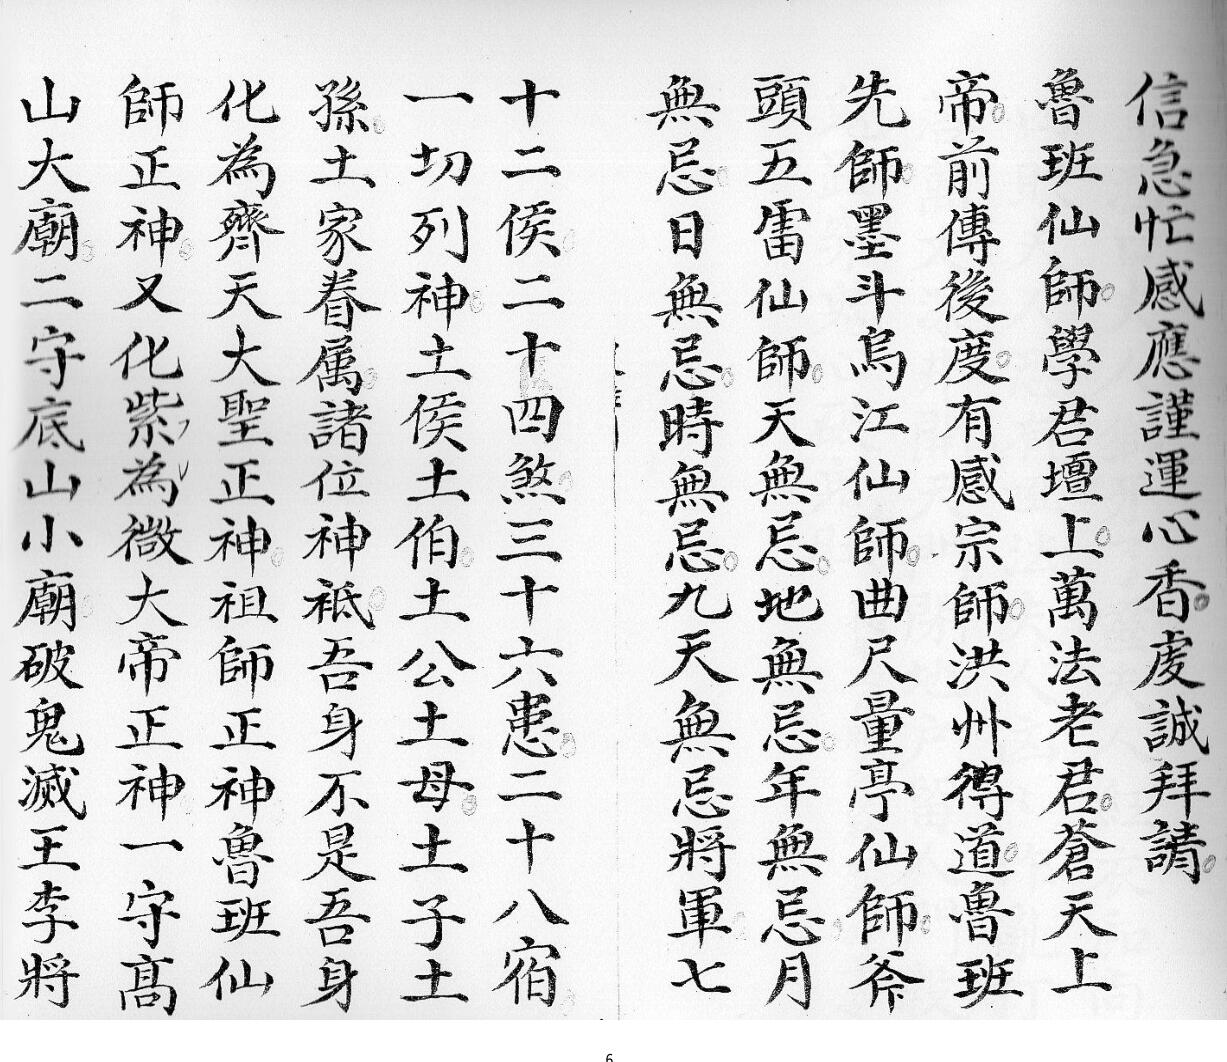 信急忙感應謹運心香虔誠拜請
魯班仙師學君壇上萬法老君蒼天上
帝前傳後度有感宗師洪州得道魯班
先師墨斗烏江仙師曲尺量亭仙師斧
頭五雷仙師天無忌地無忌年無忌月
無忌日無忌時無忌九天無忌將軍七
十二侯二十四煞三十六患二十八宿
一切列神土侯土伯土公土母土子土
孫土家眷属諸位神祗吾身不是吾身
化為齊天大聖正神祖師正神魯班仙
師正神又化紫為微大帝正神一守高
山大廟二守底山小廟破鬼滅王李將
6